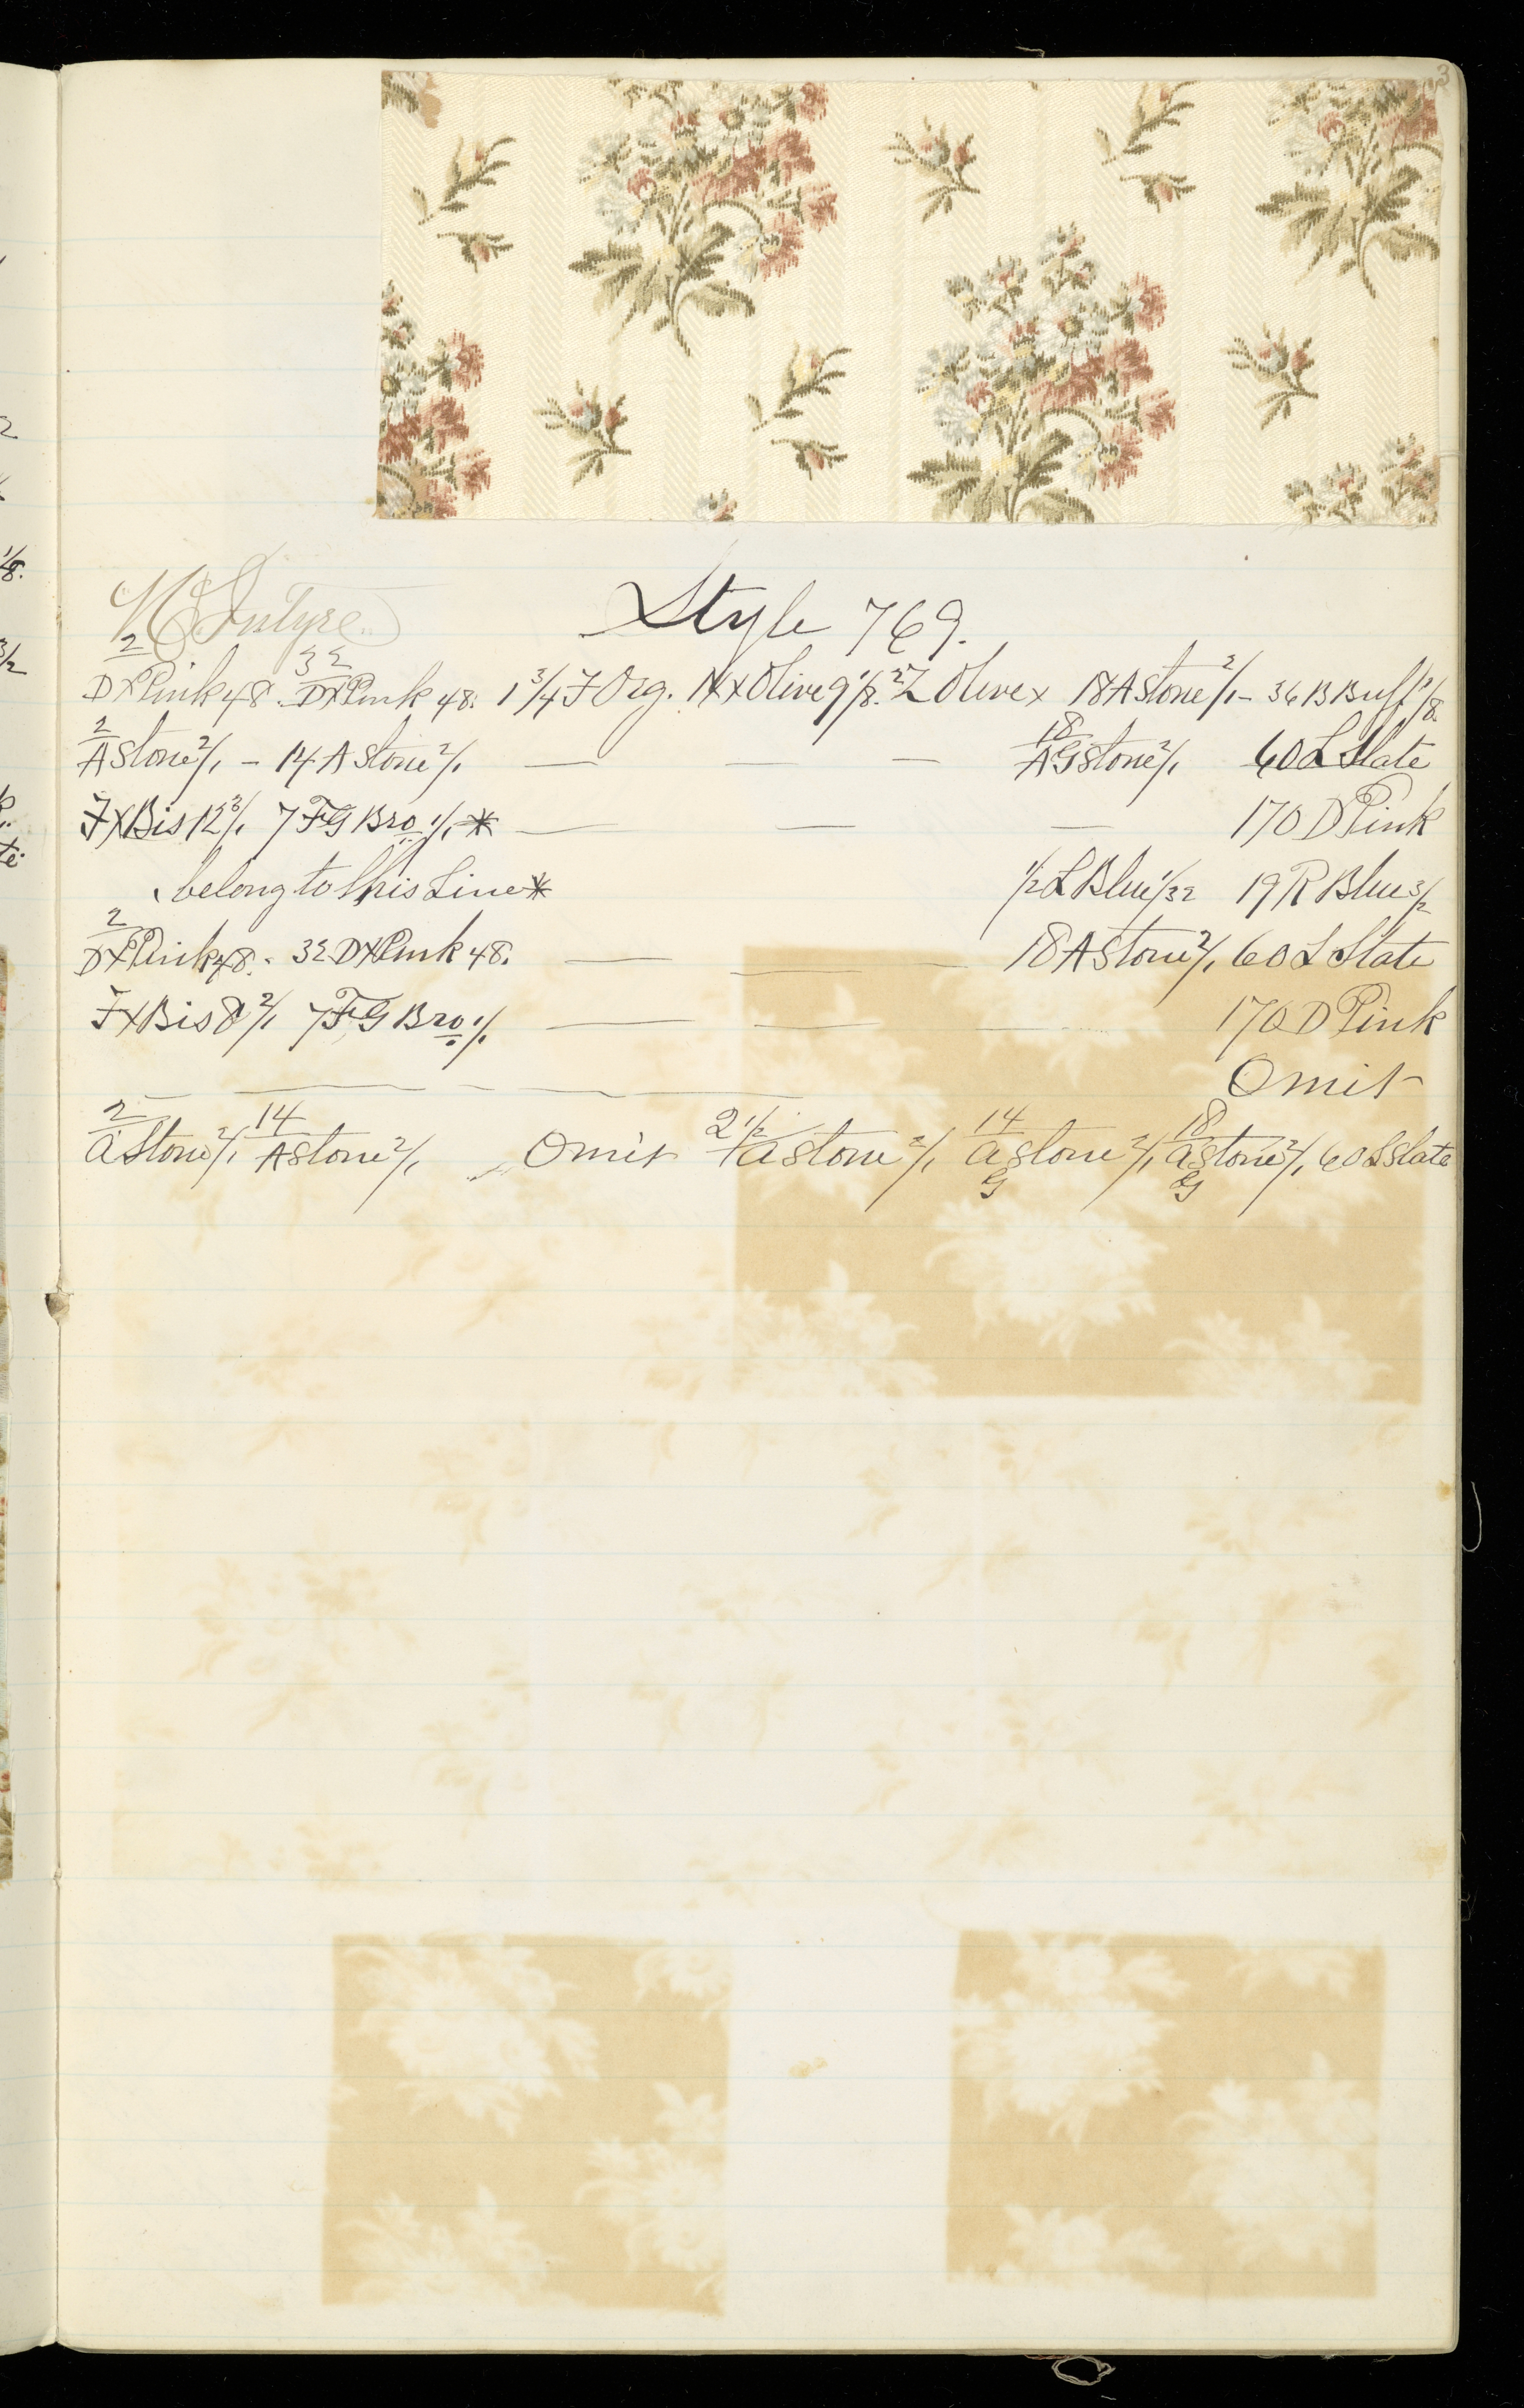 3
McIntyre Style 769.
2 32 2/
DXPink 48. DXPink 48. 1 3/4 F Org. NXXOlive 9 1/8. 2 Z Olive x 18 A Stone 2/1 - 36 B Buff 1/8.
2 18
A Stone 2/1 - 14 A Stone 2/1 — — — AG Stone 2/1 60 L Slate
FXBis 12 3/1 7 FG Bro 1/1 * — — — 170 D Pink
belong to this Line * 1/2 L Blue 1/32 19 R Blue 3/2
2
DXPink 48. - 32 DXPink 48. — — — 18 A Stone 2/1 60 L Slate
FXBis 8 2/1 7 FG Bro 1/1 — — — 170 D Pink
Omit
2 14 2 1/2 14 18
A Stone 2/1 A Stone 2/1 Omit A Stone 2/1 A Stone 2/1 A Stone 2/1 60 L Slate
G G